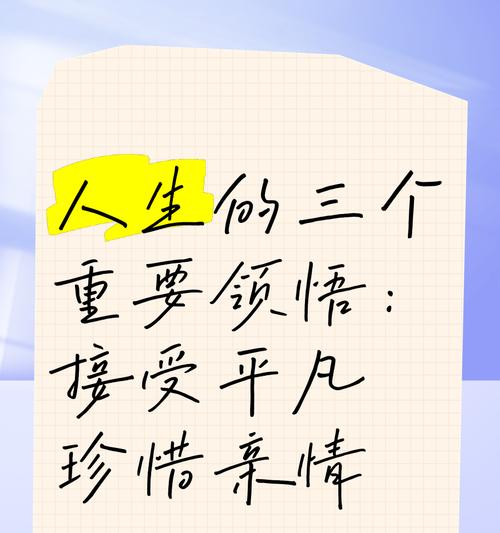 人生的三个
重要领悟：
接受平凡
珍惜亲情